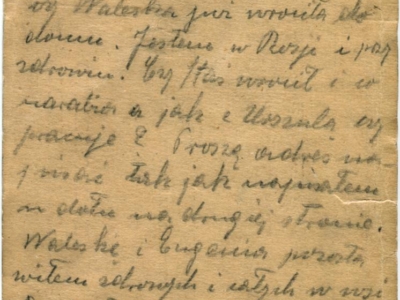 czy Waleska już wróciła do
domu. Jestem w Rosji i przy
zdrowiu. Czy Staś wrócił i w
a jak z Urszulą czy
pracuje? Proszę adres na-
pisać tak jak napisałem
u dołu na drugiej stronie.
Waleskę i Eugenia pozosta
wiłem zdrowych i całych w wsi